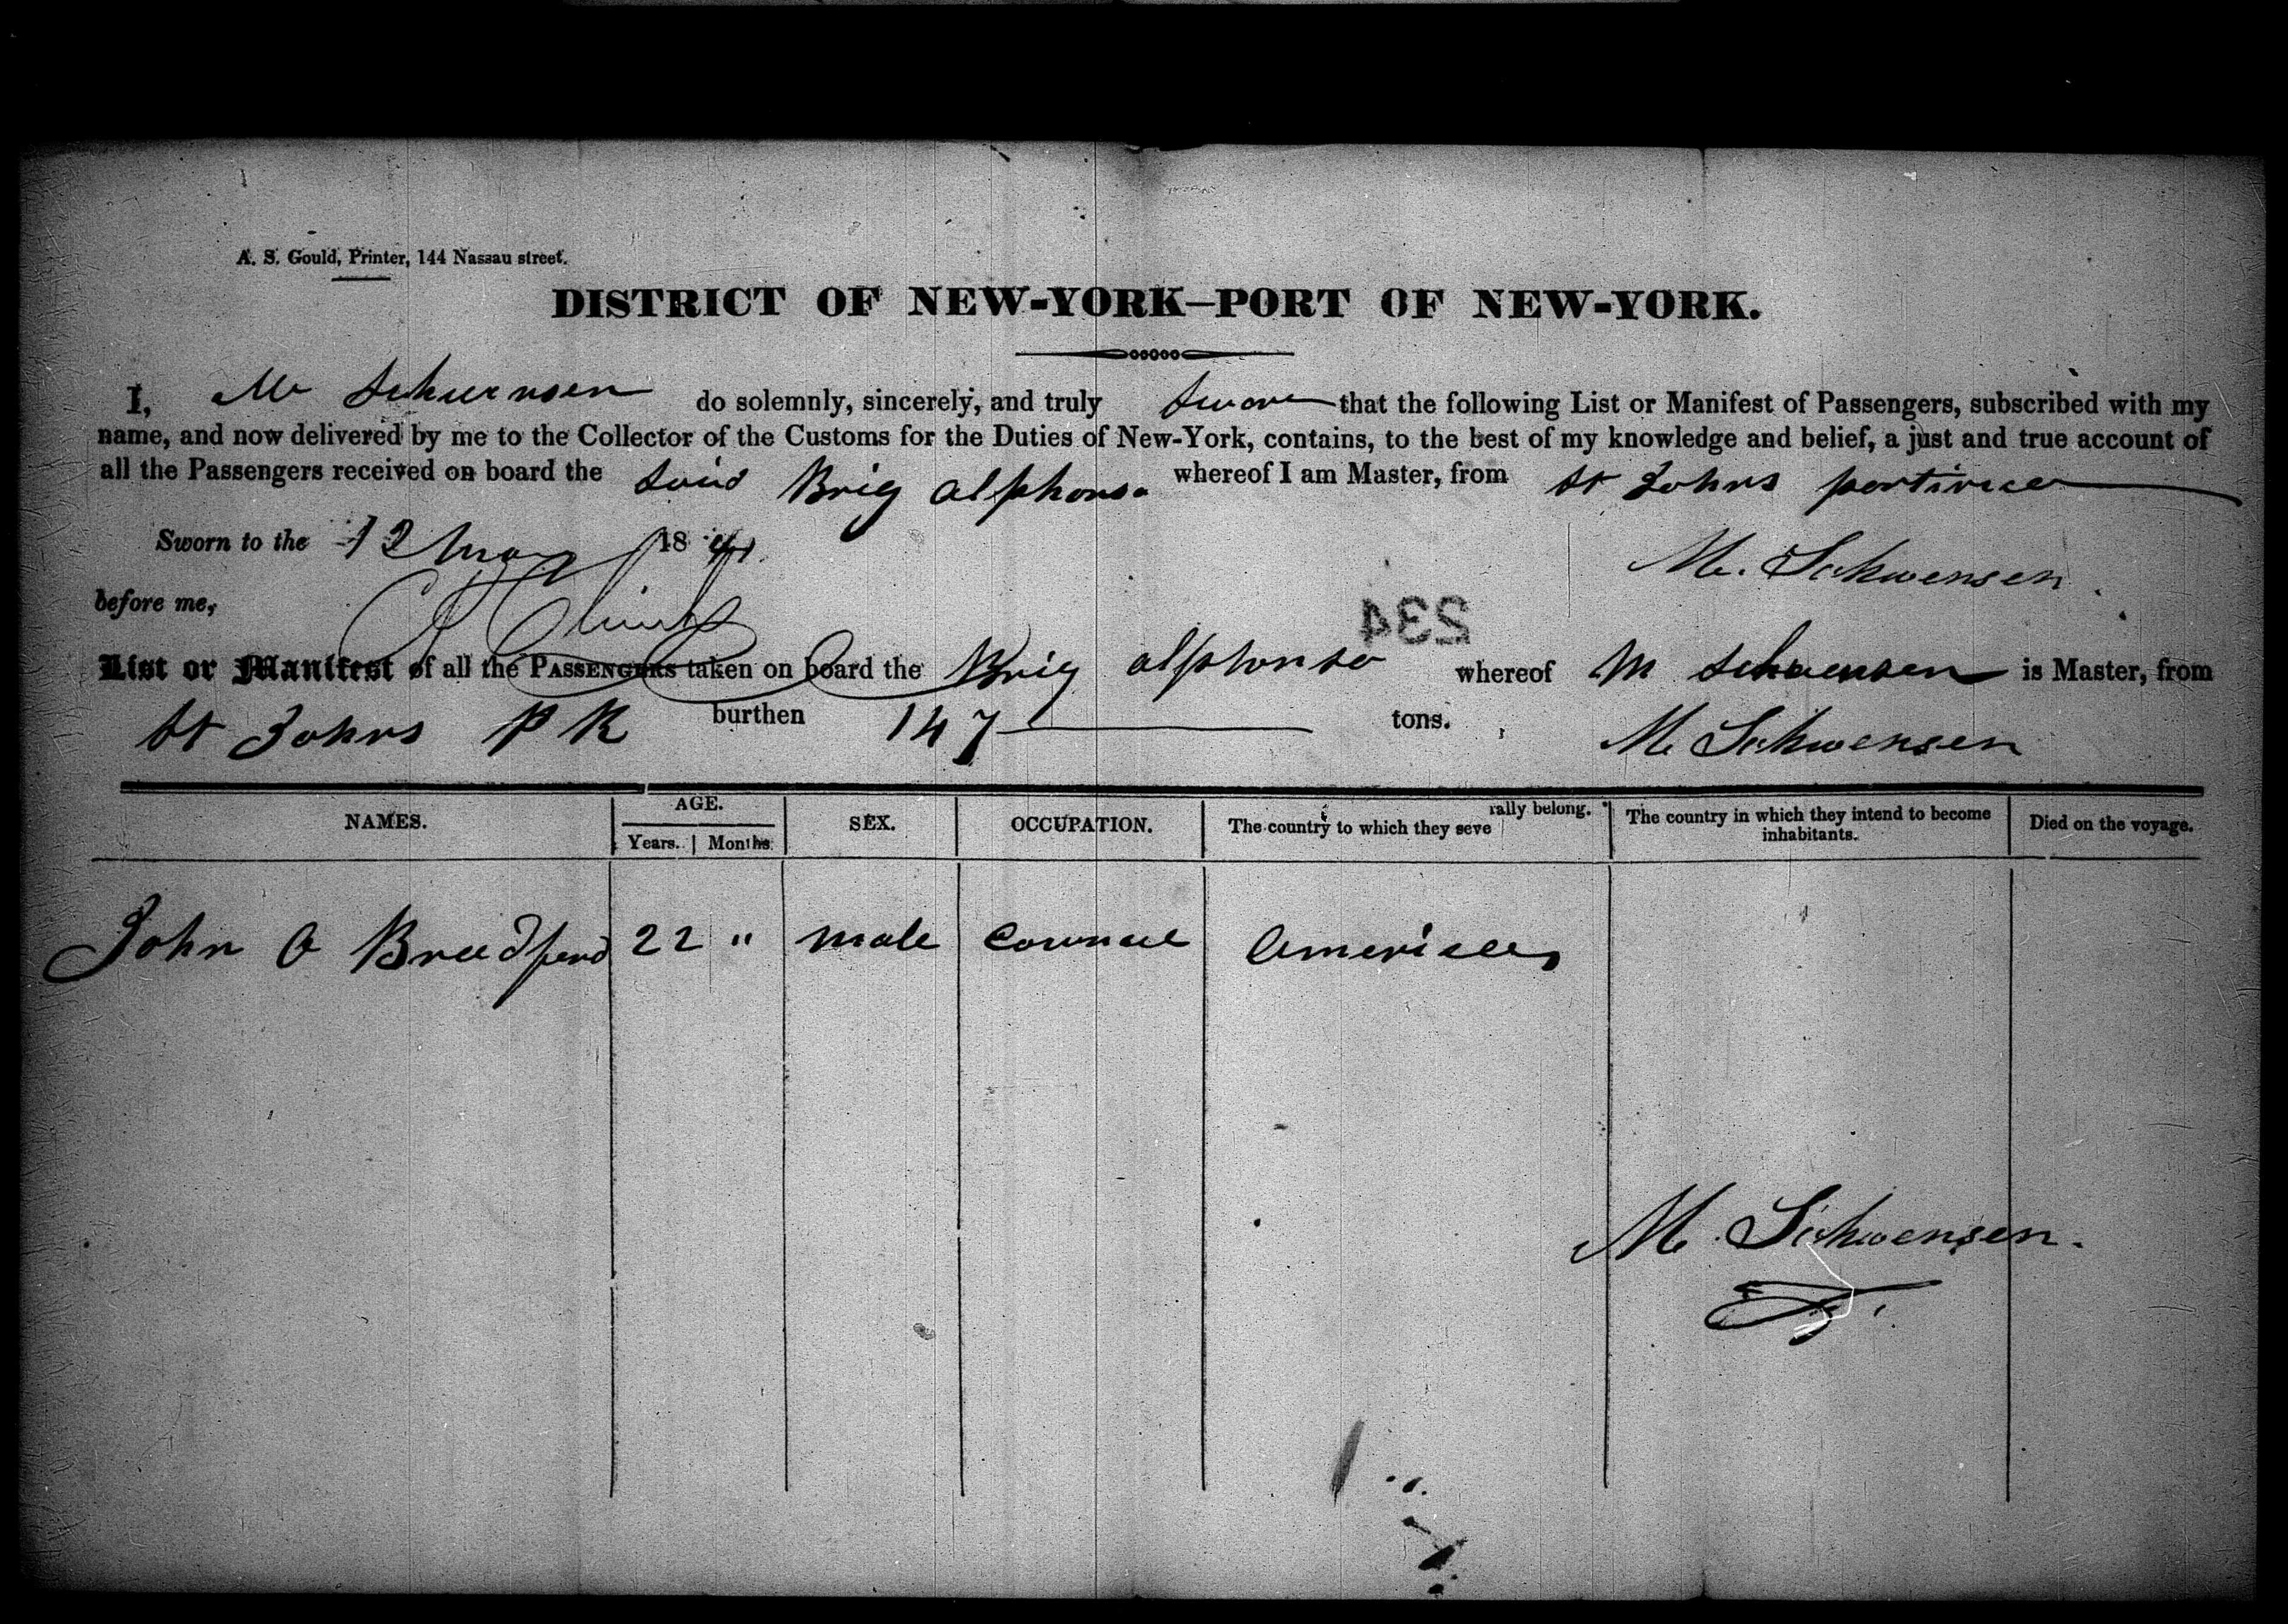 A. S. Gould, Printer, 144 Nassau street.
DISTRICT OF NEW-YORK—PORT OF NEW-YORK.
I, M Schwensen do solemnly, sincerely, and truly swear that the following List or Manifest of Passengers, subscribed with my
name, and now delivered by me to the Collector of the Customs for the Duties of New-York, contains, to the best of my knowledge and belief, a just and true account of
all the Passengers received on board the said Brig Alphonso whereof I am Master, from St Johns
Sworn to the 12 May 1841
M. Schwensen
before me,
234
List or Manifest of all the PASSENGERS taken on board the Brig Alphonso whereof M Schwensen is Master, from
St Johns P R burthen 147 tons.
M. Schwensen
NAMES. AGE. Years. Months. SEX. OCCUPATION. The country to which they severally belong. The country in which they intend to become inhabitants. Died on the voyage.
John A Bradford 22 " male America
M. Schwensen.